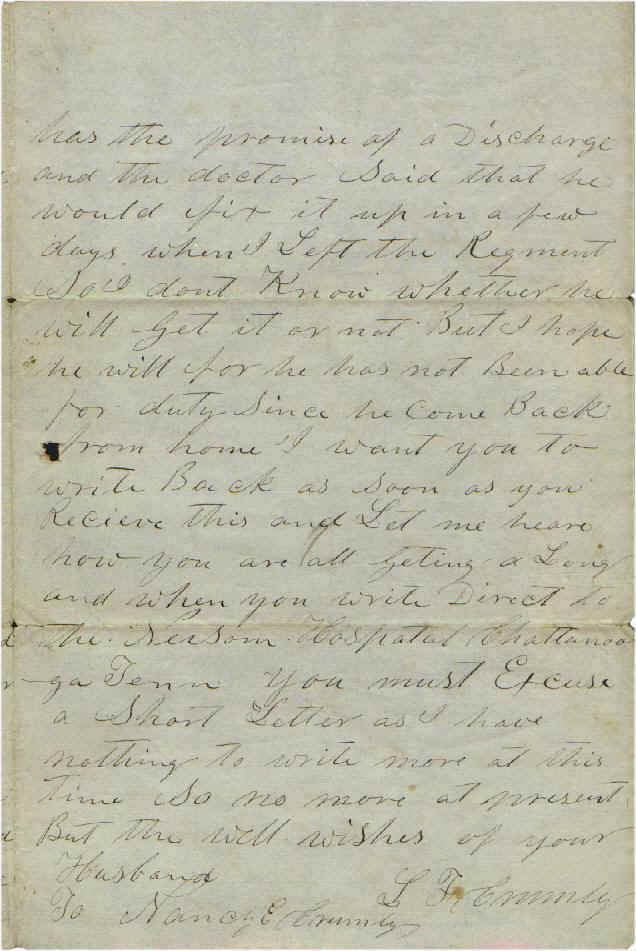 has the promise of a Discharge
and the doctor Said that he
would fix it up in a few
days when I Left the Regment
So I dont Know whether he
will Get it or not But I hope
he will for he has not Been able
for duty Since he Come Back
from home I want you to
write Back as soon as you
Recieve this and Let me heare
how you are all Geting a Long
and when you write Direct to
the Hospatal Chattanoo
ga Tenn you must Excuse
a Short Letter as I have
nothing to write more at this
time So no more at present
But the well wishes of your
Husband
L F Crumly
To Nancy E Crumly